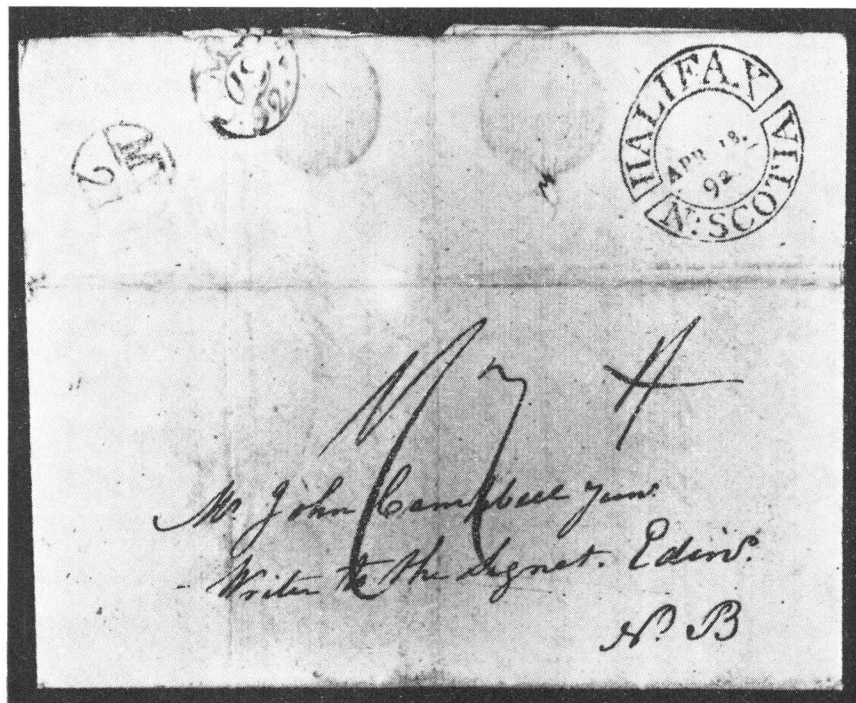 HALIFAX
N: SCOTIA
APR 18.
92
M
2
4
Mr John Campbell Junr.
Writer to the Signet. Edinr.
N. B